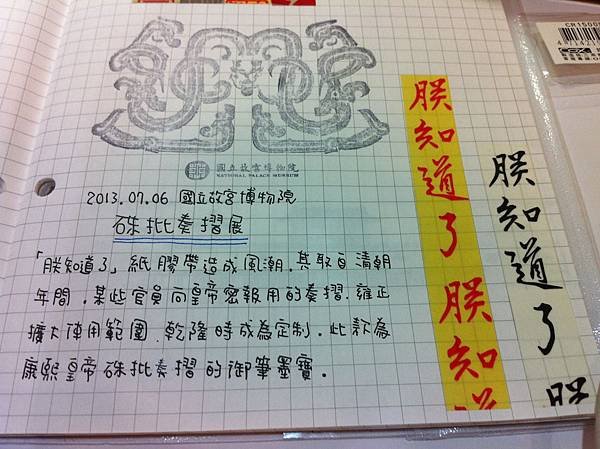 國立故宮博物院
NATIONAL PALACE MUSEUM
2013.07.06 國立故宮博物院
硃批奏摺展
「朕知道了」紙膠帶造成風潮.其取自清朝
年間.某些官員向皇帝密報用的奏摺.雍正
擴大使用範圍.乾隆時成為定制.此款為
康熙皇帝硃批奏摺的御筆墨寶.
朕知道了朕知道
朕知道了朕
CR1500